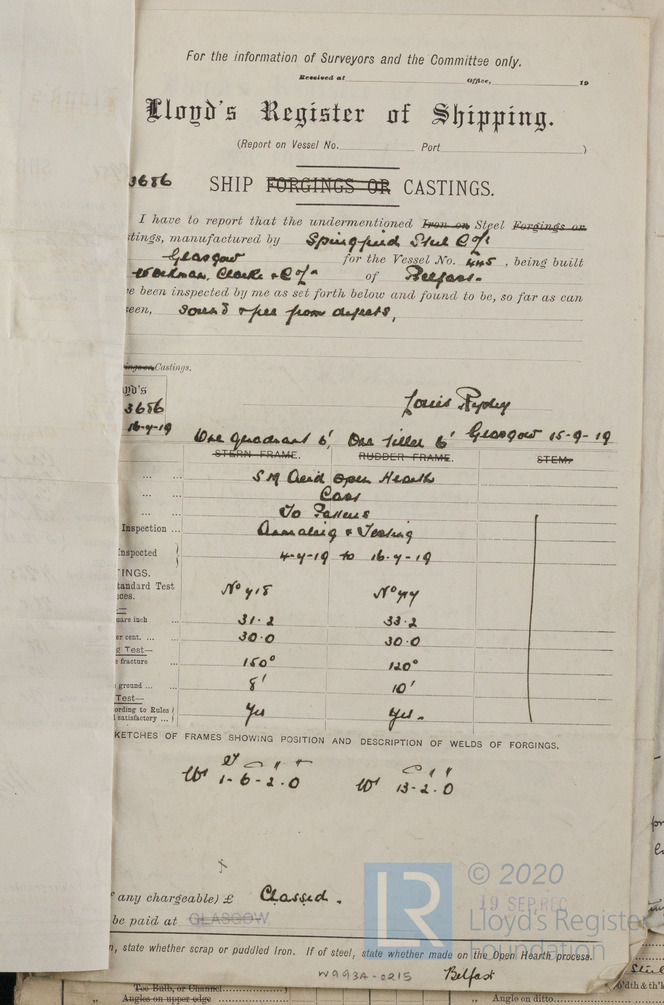 For the information of Surveyors and the Committee only.
Received at Office, 19
Lloyd's Register of Shipping.
(Report on Vessel No. Port )
3686 SHIP FORGINGS OR CASTINGS.
I have to report that the undermentioned Iron or Steel Forgings or
tings, manufactured by Springfield Steel Co/s
Glasgow for the Vessel No. 445, being built
Workman, Clarke & Co/s of Belfast.
e been inspected by me as set forth below and found to be, so far as can
een, sound & free from defects,
ings or Castings.
yd's
3686 Louis
16-4-19
One quadrant 6' One Tiller 6' Glasgow 15-9-19
STERN FRAME. RUDDER FRAME. STEM.
S M Acid Open Hearth
Cast
To Patterns
Inspection ... Annealing & Testing
nspected 4-4-19 to 16-4-19
TINGS.
tandard Test
ces. No 418 No
uare inch 31.2 33.2
er cent. ... 30.0 30.0
g Test—
e fracture ... 150° 120°
ground ... 8' 10'
Test—
ording to Rules
l satisfactory ... Yes Yes.
KETCHES OF FRAMES SHOWING POSITION AND DESCRIPTION OF WELDS OF FORGINGS.
Wt 1-6-2-0 Wt 13-2-0
f any chargeable) £ Classed.
be paid at GLASGOW
© 2020
19 SEP REC
Lloyd's Register
Foundation
LR
n, state whether scrap or puddled Iron. If of steel, state whether made on the Open Hearth process.
W993A-0215 Belfast
Tee Bulb, or Channel
" Angles on upper edge " Angles on ditto